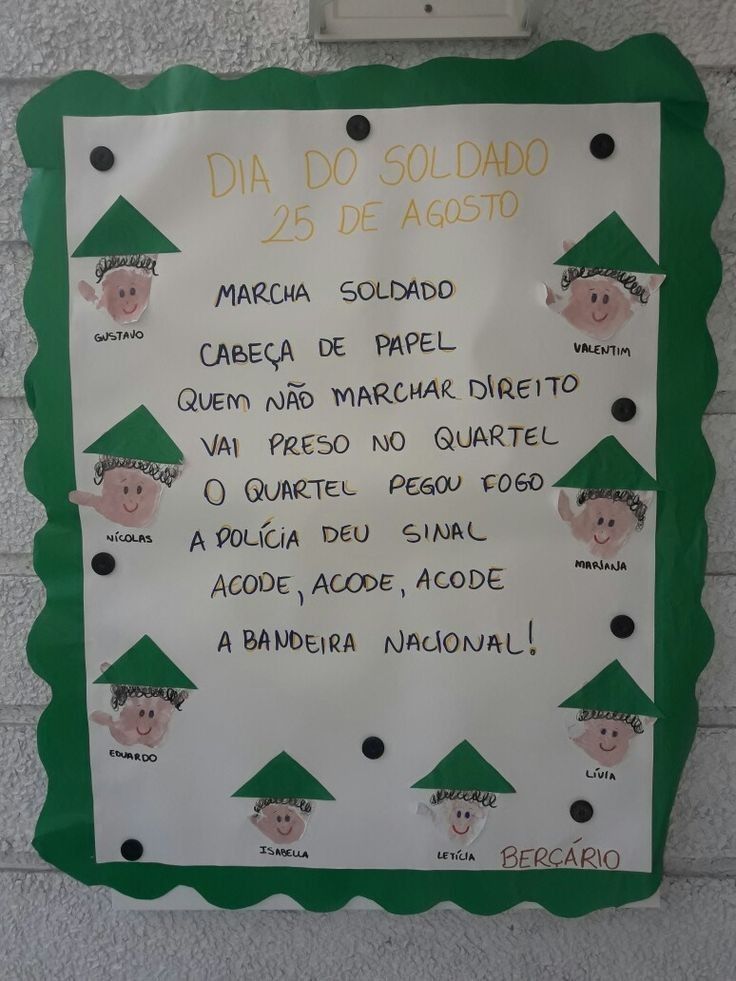 DIA DO SOLDADO
25 DE AGOSTO
MARCHA SOLDADO
CABEÇA DE PAPEL
QUEM NÃO MARCHAR DIREITO
VAI PRESO NO QUARTEL
O QUARTEL PEGOU FOGO
A POLÍCIA DEU SINAL
ACODE, ACODE, ACODE
A BANDEIRA NACIONAL!
GUSTAVO
VALENTIM
NÍCOLAS
MARIANA
EDUARDO
LÍVIA
ISABELLA
LETÍCIA
BERÇÁRIO